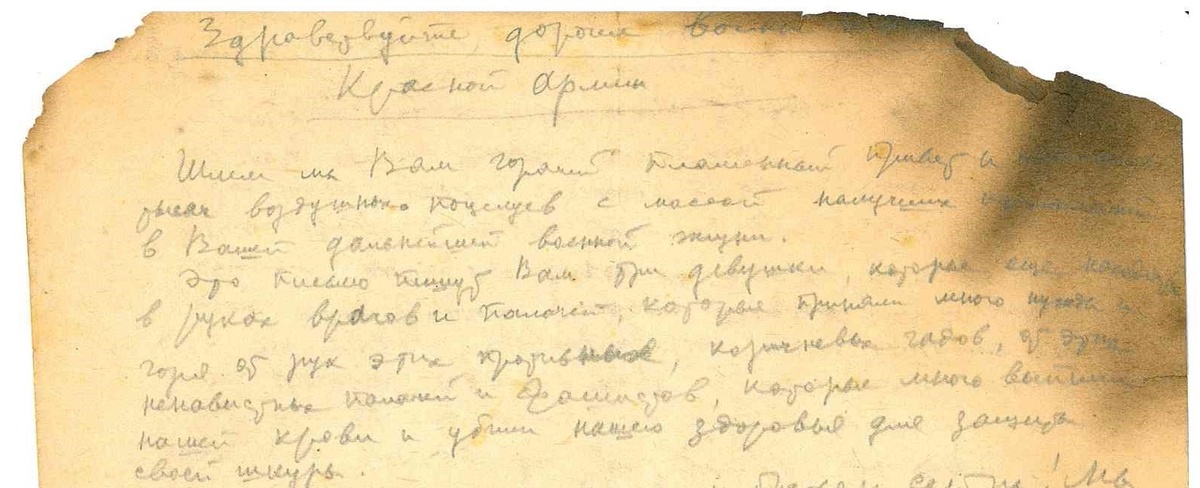 Здравствуйте, дорогие воины
Красной Армии
Шлем мы Вам горячий пламенный привет и
тысяч воздушных поцелуев с массой наилучших
в Вашей дальнейшей военной жизни.
Это письмо пишут Вам три девушки, которые ещё находятся
в руках врагов и палачей, которые приняли много нужды и
горя от рук этих противных, коричневых гадов, от этих
ненавистных палачей и фашистов, которые много выпили
нашей крови и убили нашего здоровья для защиты
своей шкуры.
сестры! Мы